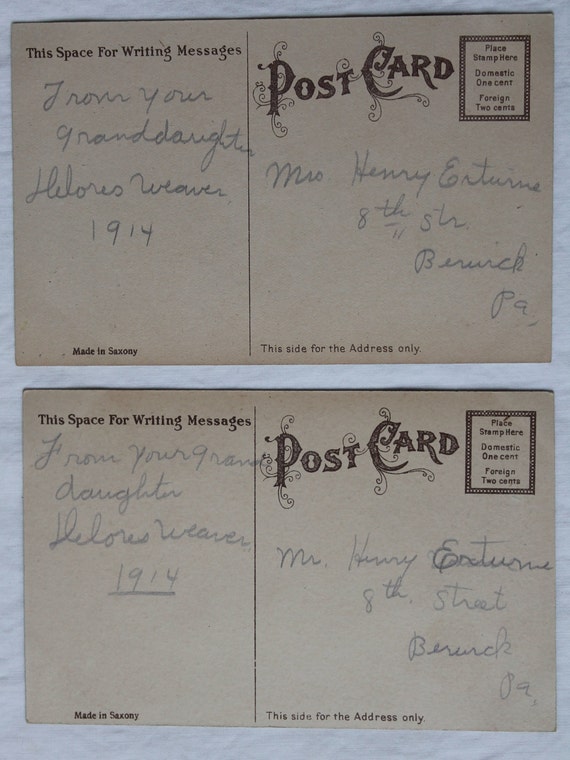 This Space For Writing Messages
POST CARD
Place
Stamp Here
Domestic
One cent
Foreign
Two cents
From your
granddaughter
Delores Weaver
1914
Mrs Henry Exturine
8th Str.
Berwick
Pa.
Made in Saxony
This side for the Address only.
This Space For Writing Messages
POST CARD
Place
Stamp Here
Domestic
One cent
Foreign
Two cents
From your grand
daughter
Delores Weaver
1914
Mr. Henry Exturine
8th Street
Berwick
Pa.
Made in Saxony
This side for the Address only.